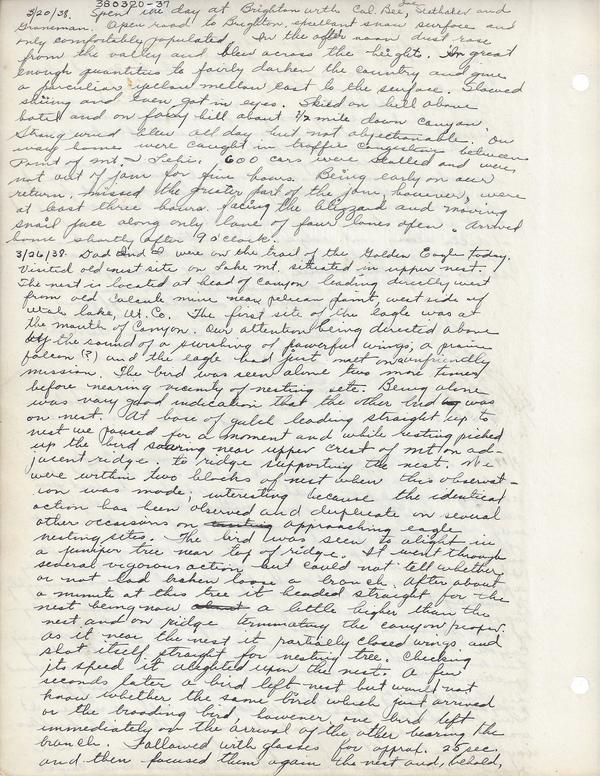 380320-37
3/20/38. Spent the day at Brighton with Cal, Bee, and
Open road to Brighton, excellent snow surface and
only comfortably populated. In the after noon dust rose
from the valley and blew across the heights. In great
enough quantities to fairly darken the country and give
a perculiar yellow mellow cast to the surface. Slowed
skiing and even got in eyes. Skied on hill above
hotel and on hill about 1/2 mile down canyon.
Strong wind blew all day but not objectionable. On
way home were caught in traffic congestion between
Point of mt. & Lehi. 600 cars were stalled and were
not out of jam for five hours. Being early on our
return, missed the greater part of the jam, however, were
at least three hours facing the blizzard and moving
snail pace along only lane of four lanes open. Arrived
home shortly after 9 o'clock.
3/26/38. Dad and I were on the trail of the Golden Eagle today.
Visited old nest site on Lake mt. situated in upper nest.
The nest is located at head of canyon leading directly west
from old mine near pelican point, west side of
Utah lake, Ut. Co. The first site of the eagle was at
the mouth of canyon. Our attention being directed above
by the sound of a swishing of powerful wings, a prairie
falcon (?) and the eagle had just met on unfriendly
mission. The bird was seen alone two more times
before nearing vicinity of nesting site. Being alone
was very good indication that the other bird was
on nest. At base of gulch leading straight up to
nest we paused for a moment and while resting picked
up the bird soaring near upper crest of mt on ad-
jacent ridge. to ridge supporting the nest. We
were within two blocks of nest when this observat-
ion was made, interesting because the identical
action has been observed and duplicate on several
other occaisions on approaching eagle
nesting sites. The bird was seen to alight in
a juniper tree near top of ridge. It went through
several vigorous action but could not tell whether
or not had broken loose a branch. After about
a minute at this tree it headed straight for the
nest being now a little higher than the
nest and on ridge terminating the canyon proper.
As it near the nest it partially closed wings and
shot itself straight for nesting tree. Checking
its speed it alighted upon the nest. A few
seconds later a bird left nest but would not
know whether the same bird which just arrived
or the brooding bird, however one bird left
immediately on the arrival of the other bearing the
branch. Followed with glasses for approx. 25 sec.
and then focused them again the nest and, behold,